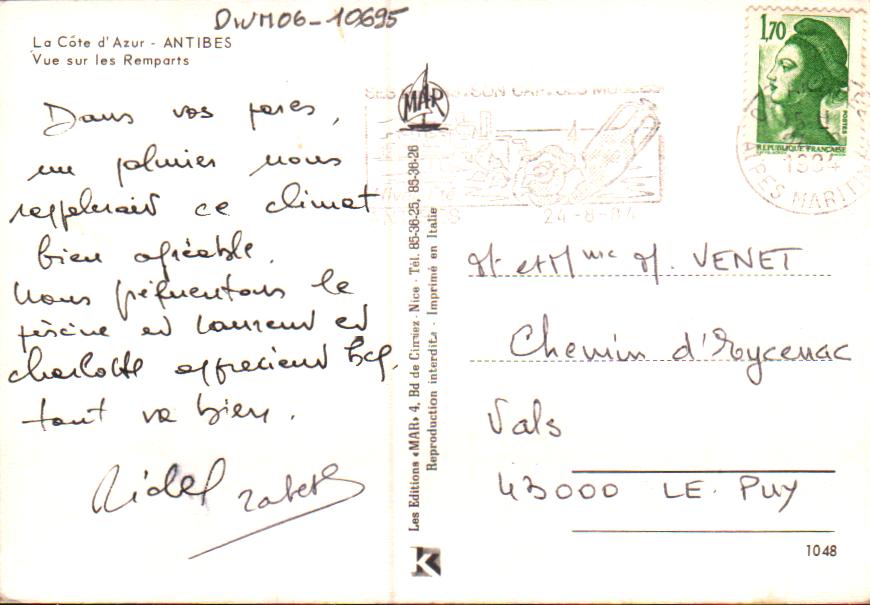 DWM06-10695
La Côte d'Azur - ANTIBES
Vue sur les Remparts
Dans vos pares,
un palmier vous
rappelerait ce climat
bien agréable.
Nous fréquentons la
piscine et Laurent et
Charlotte apprécient bcp.
tout va bien.
MAR
Les Editions «MAR» 4, Bd de Cimiez - Nice - Tél. 85-36-25, 85-36-26
Reproduction interdite - Imprimé en Italie
K
1,70
POSTES
REPUBLIQUE FRANÇAISE
1984
ALPES MARITIMES
24-8-84
Mr et Mme M. VENET
Chemin d'Eycenac
Vals
43000 LE PUY
1048